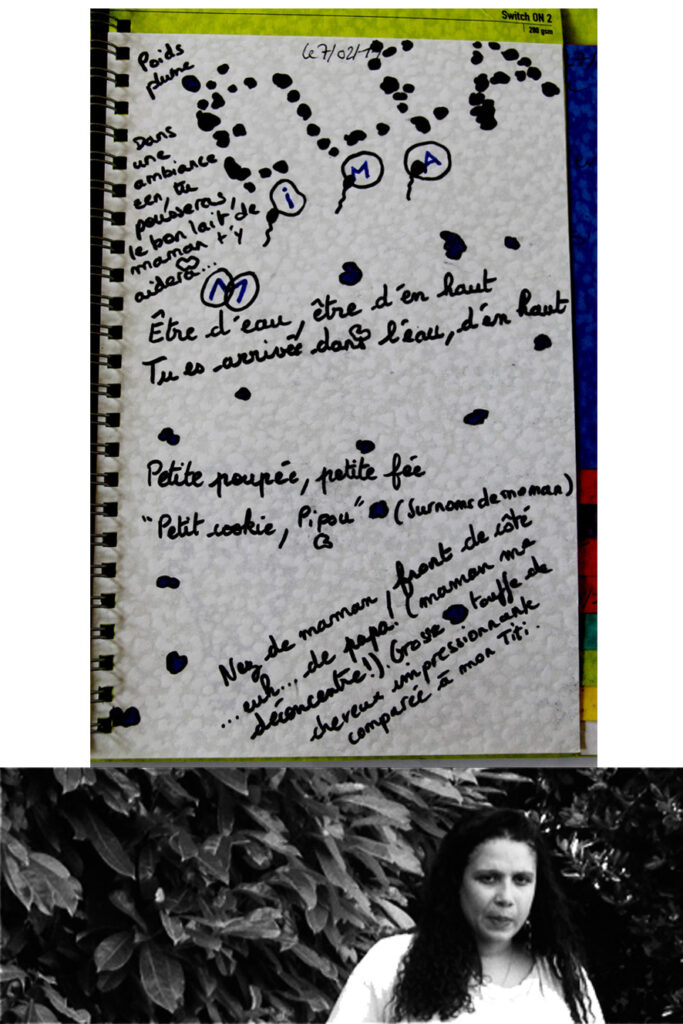 Switch ON 2
200 gsm
Poids
plume
Dans
une
ambiance
zen, tu
pousseras,
le bon lait de
maman t'y
aidera...
M i M A
Être d'eau, être d'en haut
Tu es arrivée dans l'eau, d'en haut
Petite poupée, petite fée
"Petit cookie, Pipou" (Surnoms de maman)
Nez de maman, front de côté
... euh... de papa! (maman me
déconcentre!). Grosse touffe de
cheveux impressionnante
comparée à mon Titi.